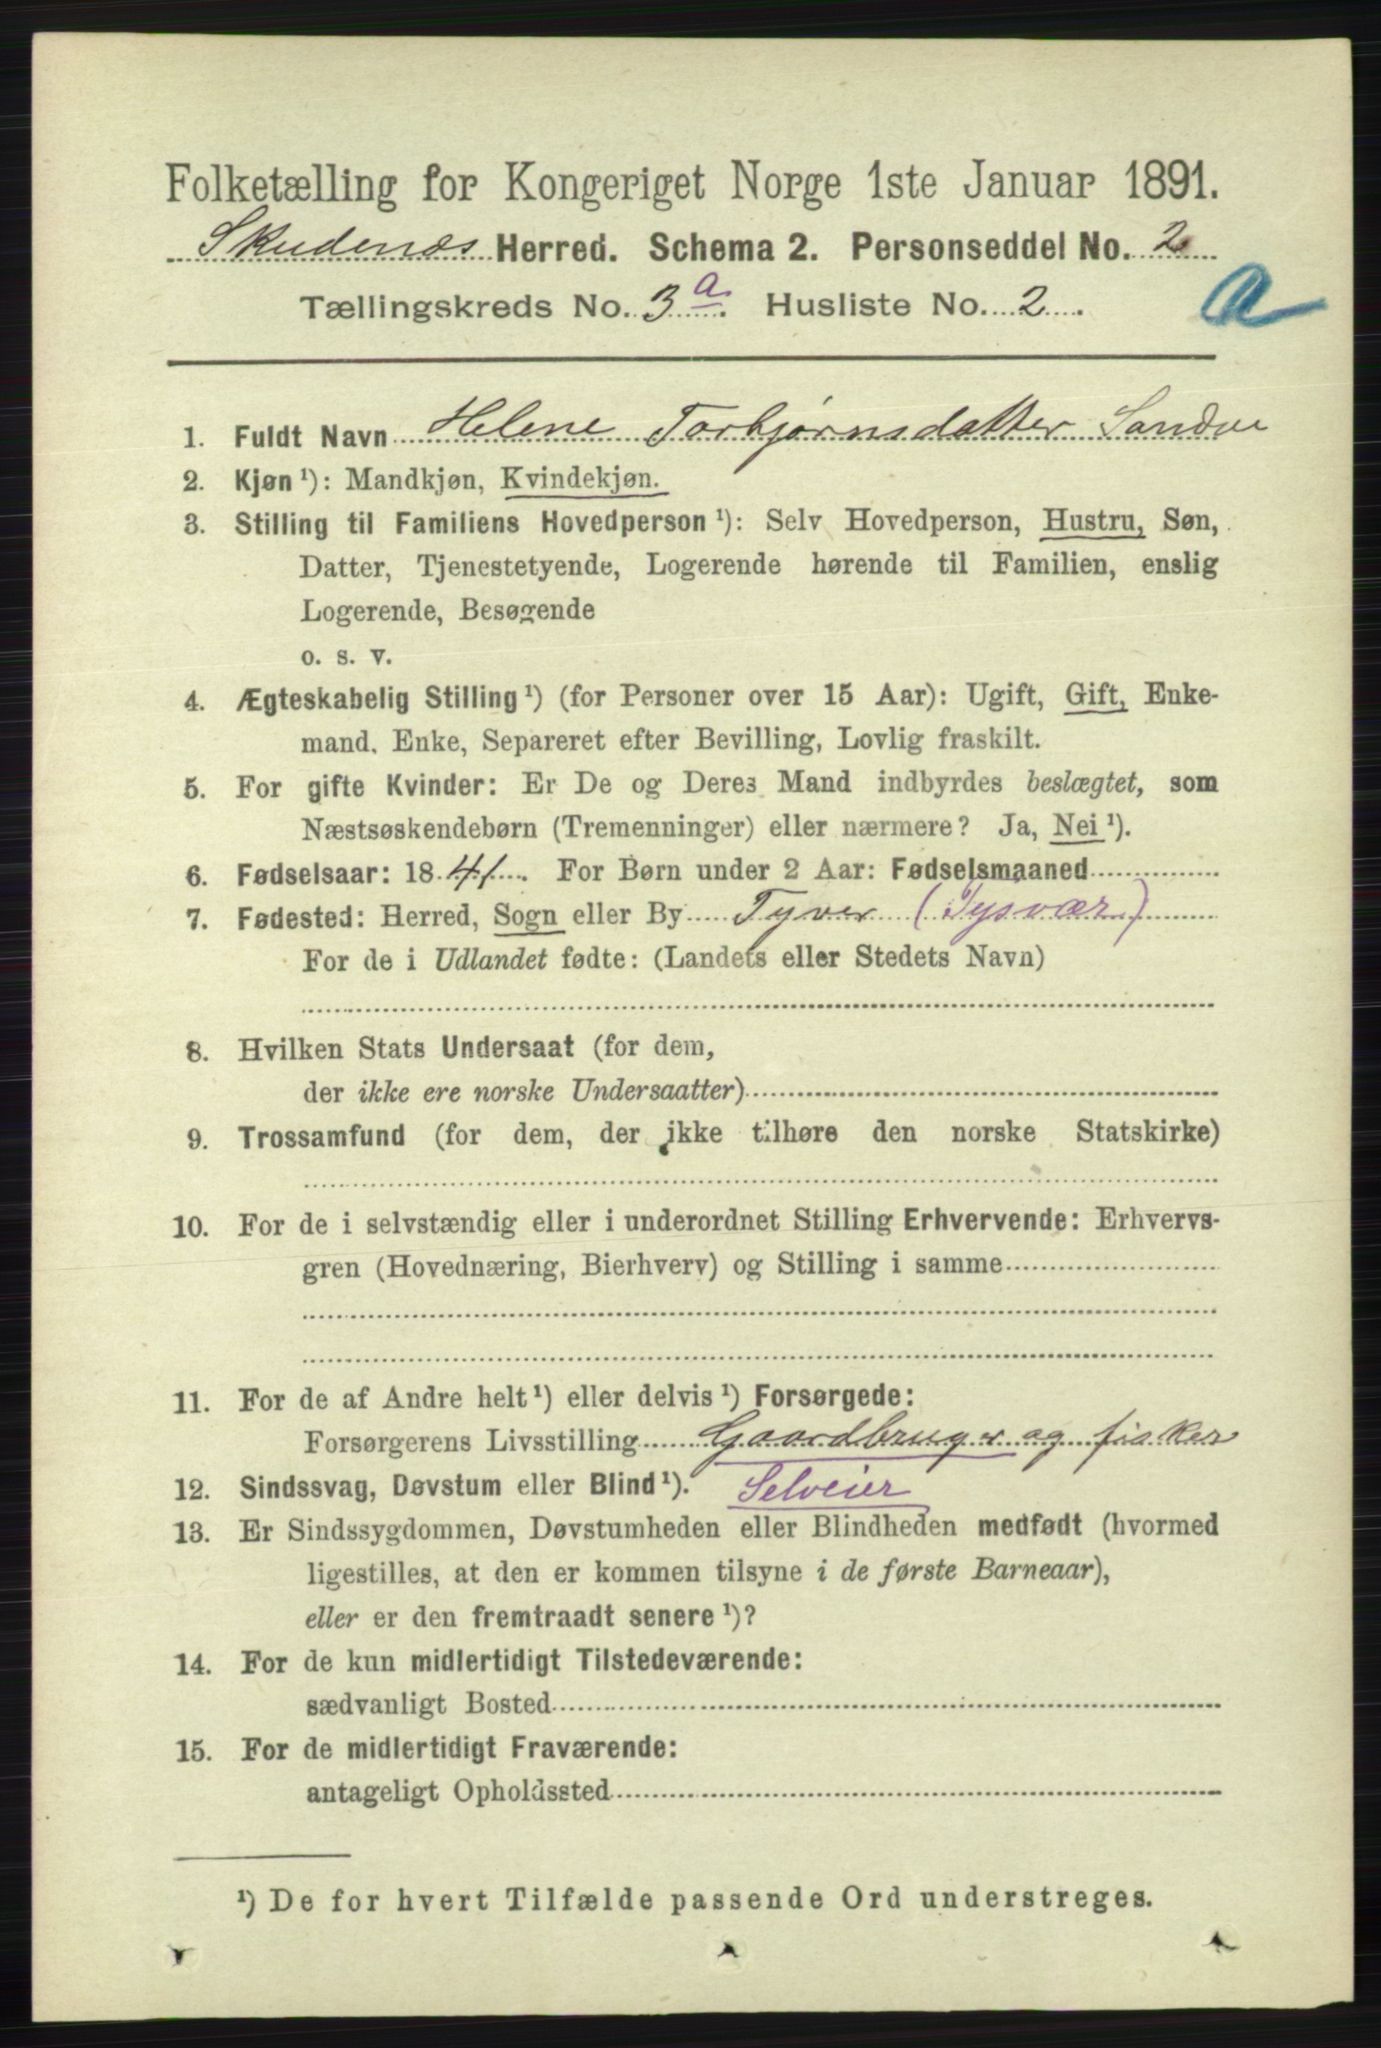 Folketælling for Kongeriget Norge 1ste Januar 1891.
Skudenæs Herred. Schema 2. Personseddel No. 2
Tællingskreds No. 3 a. Husliste No. 2.
a
1. Fuldt Navn Helene Torbjørnsdatter Sandve
2. Kjøn ¹): Mandkjøn, Kvindekjøn.
3. Stilling til Familiens Hovedperson ¹): Selv Hovedperson, Hustru, Søn,
Datter, Tjenestetyende, Logerende hørende til Familien, enslig
Logerende, Besøgende
o. s. v.
4. Ægteskabelig Stilling ¹) (for Personer over 15 Aar): Ugift, Gift, Enke-
mand, Enke, Separeret efter Bevilling, Lovlig fraskilt.
5. For gifte Kvinder: Er De og Deres Mand indbyrdes beslægtet, som
Næstsøskendebørn (Tremenninger) eller nærmere? Ja, Nei ¹).
6. Fødselsaar: 1841. For Børn under 2 Aar: Fødselsmaaned
7. Fødested: Herred, Sogn eller By Tyver (Tysvær)
For de i Udlandet fødte: (Landets eller Stedets Navn)
8. Hvilken Stats Undersaat (for dem,
der ikke ere norske Undersaatter)
9. Trossamfund (for dem, der ikke tilhøre den norske Statskirke)
10. For de i selvstændig eller i underordnet Stilling Erhvervende: Erhvervs-
gren (Hovednæring, Bierhverv) og Stilling i samme
11. For de af Andre helt ¹) eller delvis ¹) Forsørgede:
Forsørgerens Livsstilling Gaardbruger og fisker
12. Sindssvag, Døvstum eller Blind ¹). Selveier
13. Er Sindssygdommen, Døvstumheden eller Blindheden medfødt (hvormed
ligestilles, at den er kommen tilsyne i de første Barneaar),
eller er den fremtraadt senere ¹)?
14. For de kun midlertidigt Tilstedeværende:
sædvanligt Bosted
15. For de midlertidigt Fraværende:
antageligt Opholdssted
¹) De for hvert Tilfælde passende Ord understreges.